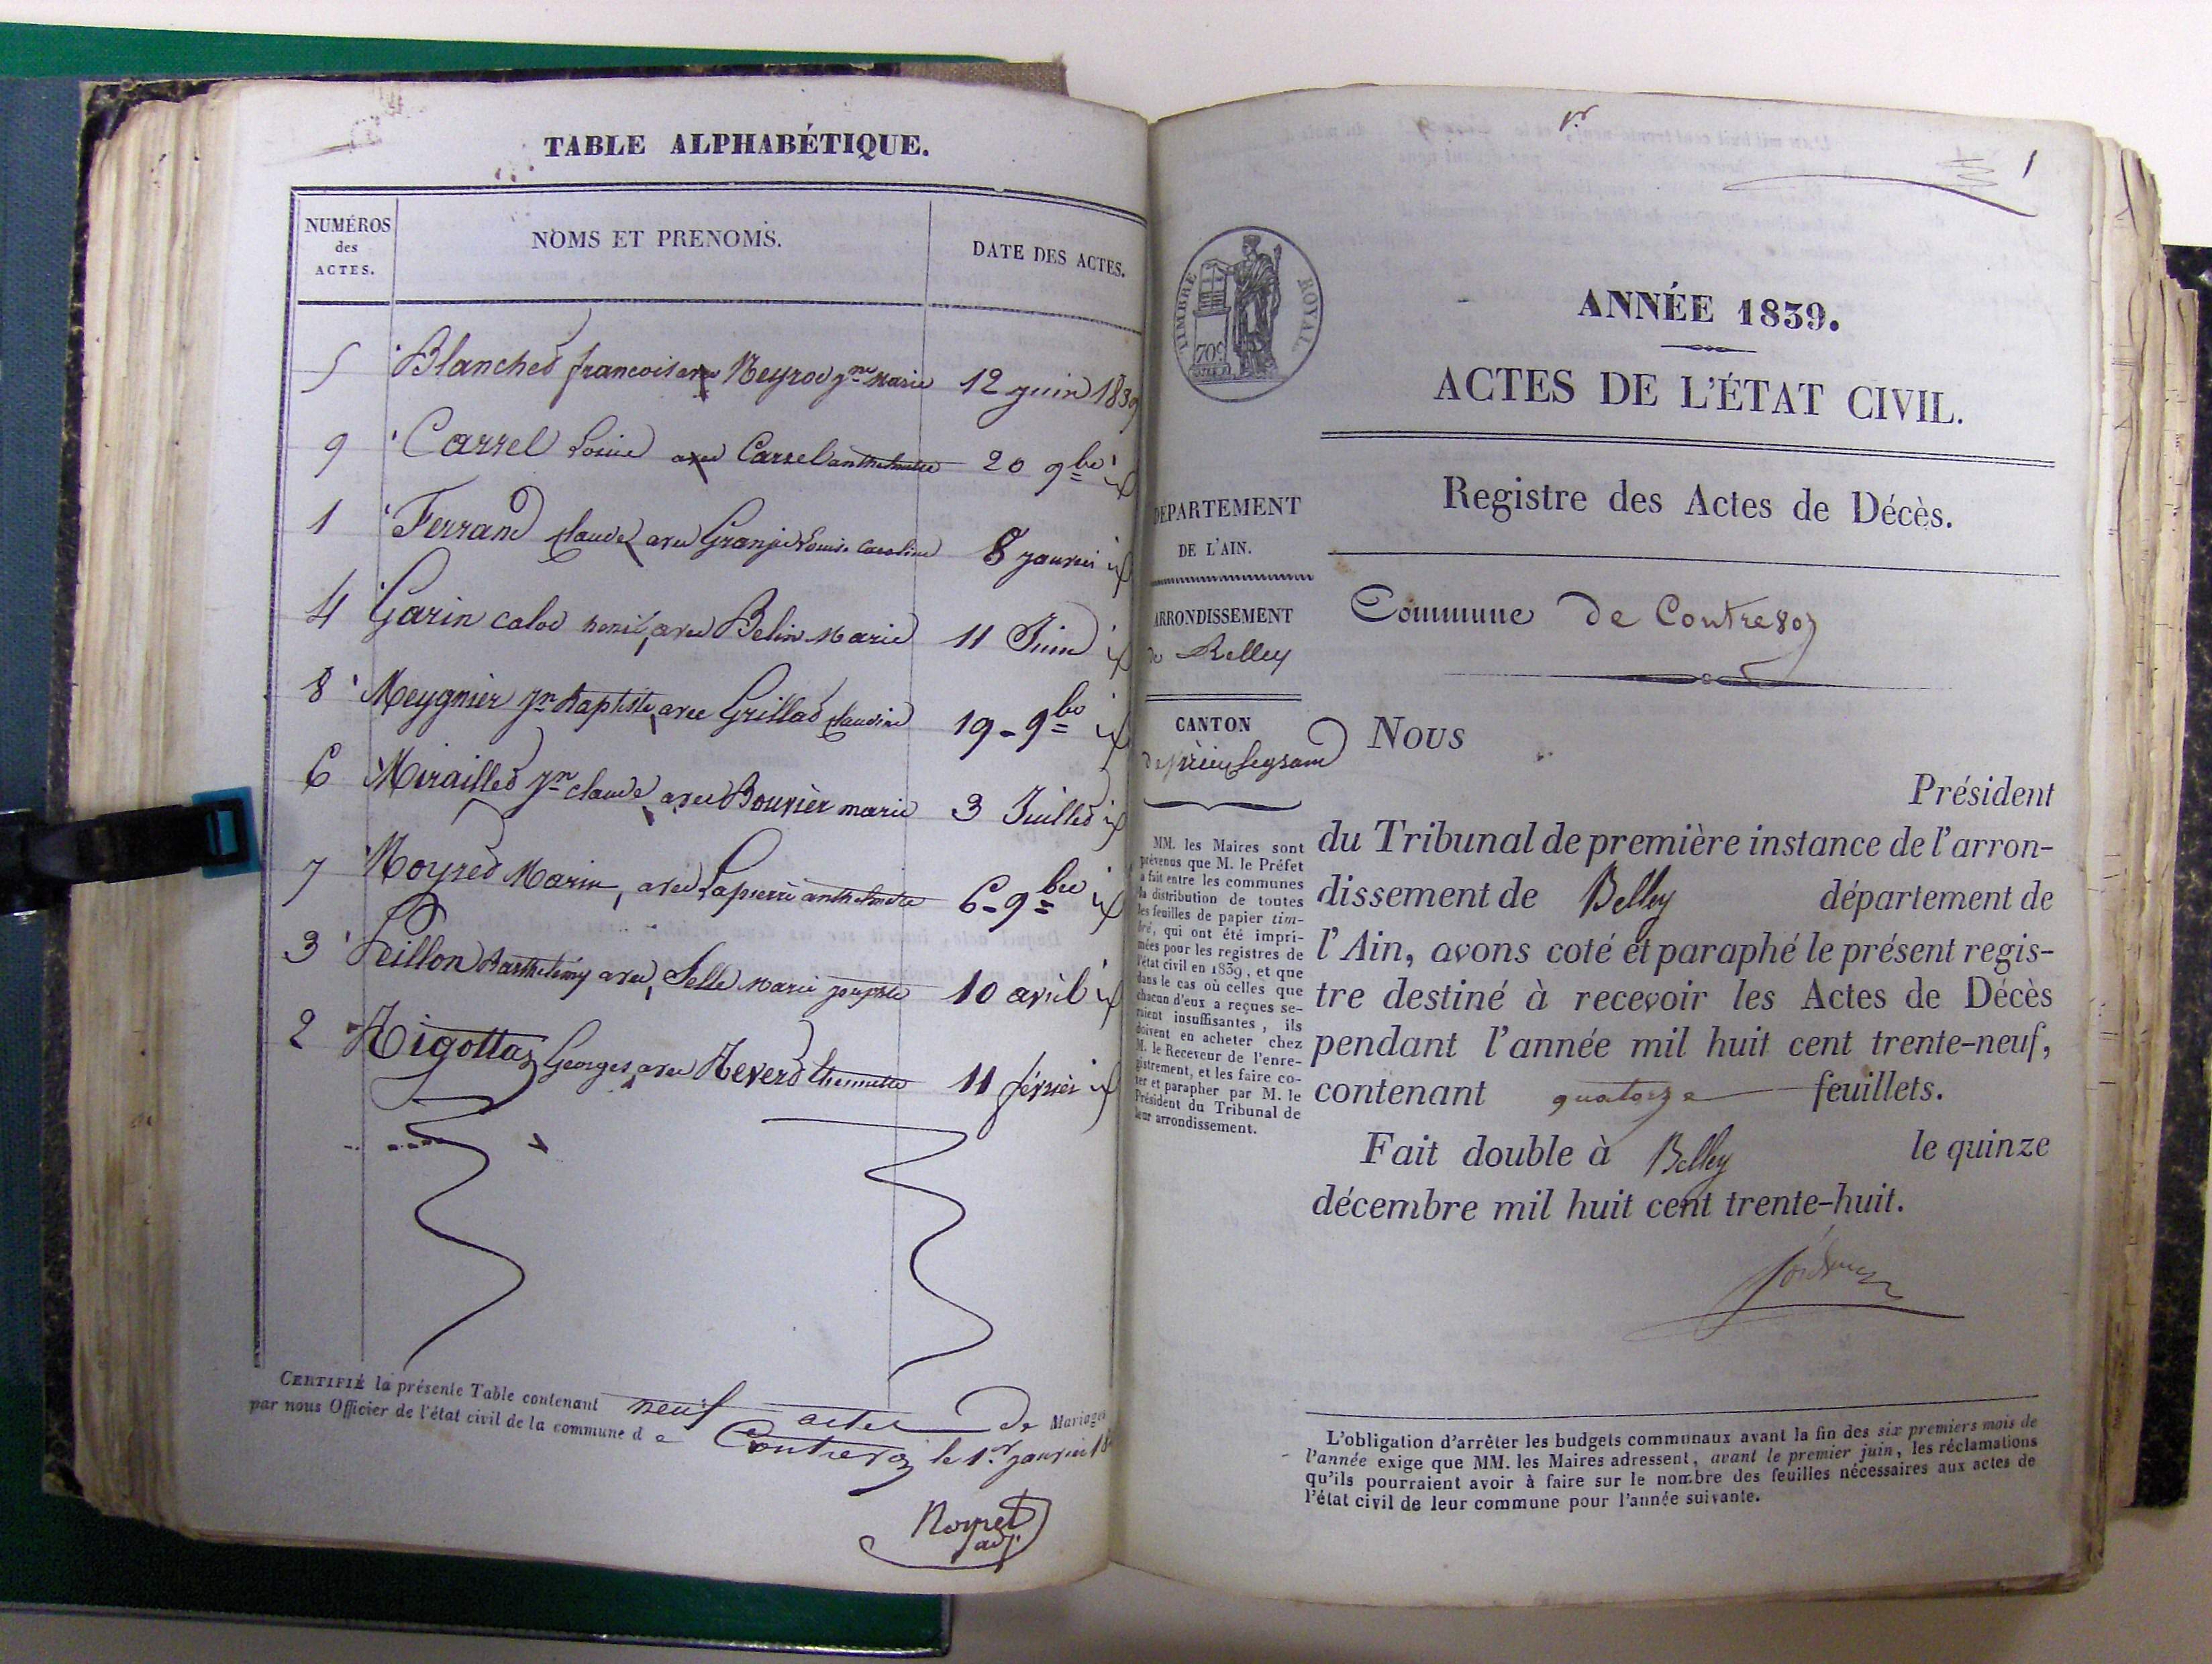 TABLE ALPHABÉTIQUE.
NUMÉROS
des
ACTES.
NOMS ET PRENOMS.
DATE DES ACTES.
5 Blanched francois avec Neyrod jne Marie 12 juin 1839
9 Carrel Louise avec Carrel anthelmette 20 9bre id
1 Ferrand Claude avec Granje Louise Caroline 8 janvier id
4 Garin avec Belin Marie 11 Juin id
8 Meygnier jn Baptiste avec Grillad Claudine 19 - 9bre id
6 Mirailled jn claude avec Bouvier marie 3 Juilled id
7 Noyred Marin, avec Lapierre anthelmette 6 - 9bre id
3 Peillon Barthelémy avec Selle Marie josephte 10 avril id
2 Rigottaz Georges avec Reverd thiennette 11 février id
CERTIFIÉ la présente Table contenant neuf actes de Mariages
par nous Officier de l'état civil de la commune de Contrevoz le 1.r janvier 18
Noyret
adj.
1r
1
TIMBRE ROYAL
70c
ANNÉE 1839.
ACTES DE L'ÉTAT CIVIL.
Registre des Actes de Décès.
DÉPARTEMENT
DE L'AIN.
ARRONDISSEMENT
de Belley
CANTON
de virieu legrand
MM. les Maires sont
prévenus que M. le Préfet
a fait entre les communes
la distribution de toutes
les feuilles de papier tim-
bré, qui ont été impri-
mées pour les registres de
l'état civil en 1839, et que
dans le cas où celles que
chacun d'eux a reçues se-
raient insuffisantes, ils
doivent en acheter chez
M. le Receveur de l'enre-
gistrement, et les faire co-
ter et parapher par M. le
Président du Tribunal de
leur arrondissement.
Commune de Contrevoz
Nous
Président
du Tribunal de première instance de l'arron-
dissement de Belley département de
l'Ain, avons coté et paraphé le présent regis-
tre destiné à recevoir les Actes de Décès
pendant l'année mil huit cent trente-neuf,
contenant quatorze feuillets.
Fait double à Belley le quinze
décembre mil huit cent trente-huit.
L'obligation d'arrêter les budgets communaux avant la fin des six premiers mois de
l'année exige que MM. les Maires adressent, avant le premier juin, les réclamations
qu'ils pourraient avoir à faire sur le nombre des feuilles nécessaires aux actes de
l'état civil de leur commune pour l'année suivante.